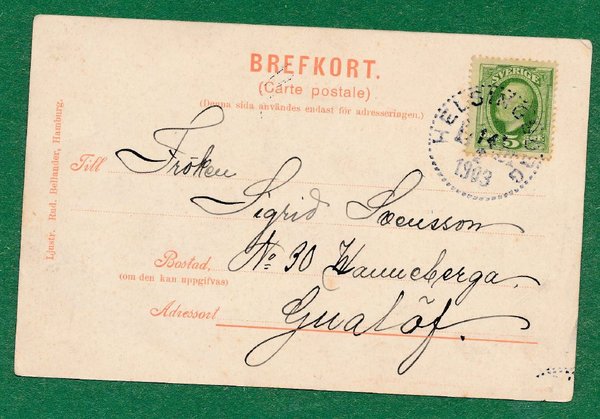 BREFKORT.
(Carte postale)
(Denna sida användes endast för adresseringen.)
SVERIGE
5
HELSINGBORG
1903
Till Fröken
Sigrid Svensson
Bostad, No 30 Wanneberga
(om den kan uppgifvas)
Adressort Gualöf.
Ljustr. Rud. Bellander, Hamburg.